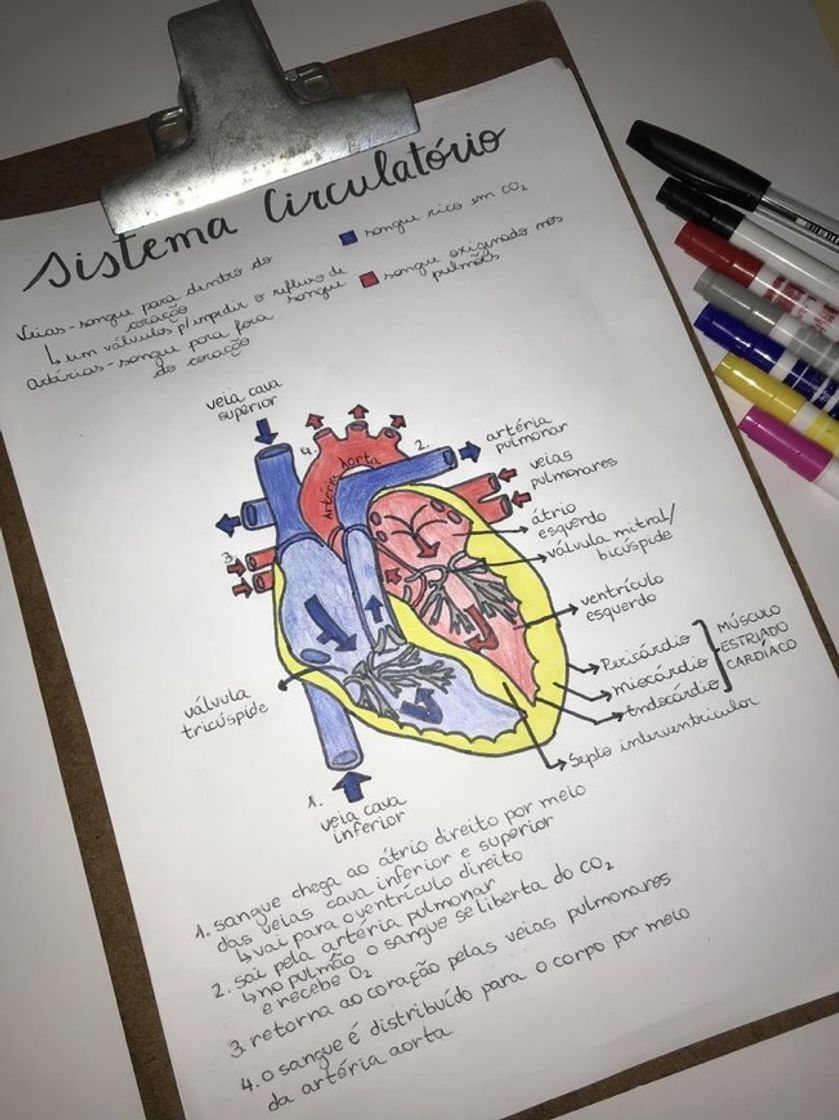 Sistema Circulatório
Veias - sangue para dentro do
coração
↳ um válvulas p/impedir o refluxo de
sangue
Artérias - sangue para fora
do coração
sangue rico em CO₂
sangue oxiginado nos
pulmões
veia cava
superior
4.
Artéria Aorta
2.
artéria
pulmonar
veias
pulmonares
átrio
esquerdo
válvula mitral/
bicúspide
3.
ventrículo
esquerdo
Pericárdio
miocárdio
Endocárdio
MÚSCULO
ESTRIADO
CARDÍACO
válvula
tricúspide
Septo interventricular
1.
veia cava
inferior
1. sangue chega ao átrio direito por meio
das veias cava inferior e superior
↳ vai para o ventrículo direito
2. sai pela artéria pulmonar
↳ no pulmão o sangue se liberta do CO₂
e recebe O₂
3. retorna ao coração pelas veias pulmonares
4. o sangue é distribuído para o corpo por meio
da artéria aorta.